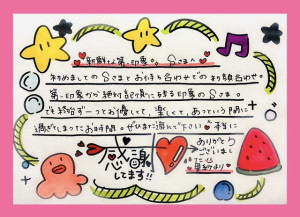 第一印象。Sさまへ
初めましてのSさまとお待ち合わせでの初顔合わせ。
第一印象から絶対記憶に残る印象のSさま。
でも終始ずーっとお優しくて、楽しくて、あっという間に
過ぎてしまったお時間。ぜひまた遊んで下さい 本当に
ありがとう
ございました
感謝
してます!!